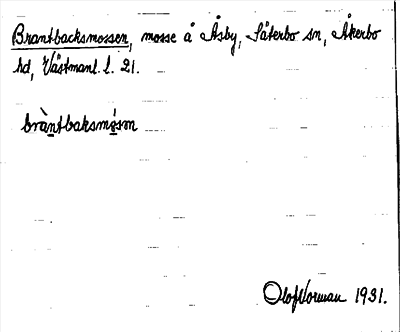 Brantbacksmossen, mosse å Åsby, Säterbo sn, Åkerbo
hd, Västmanl. l. 21.
bràntbaksmósm
Olof Norman 1931.